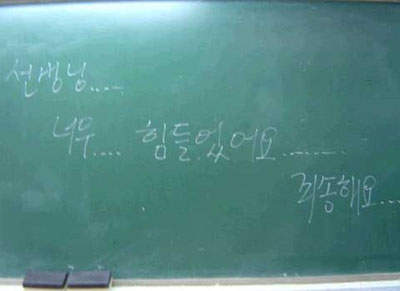 선생님....
너무.... 힘들었어요.......
죄송해요...